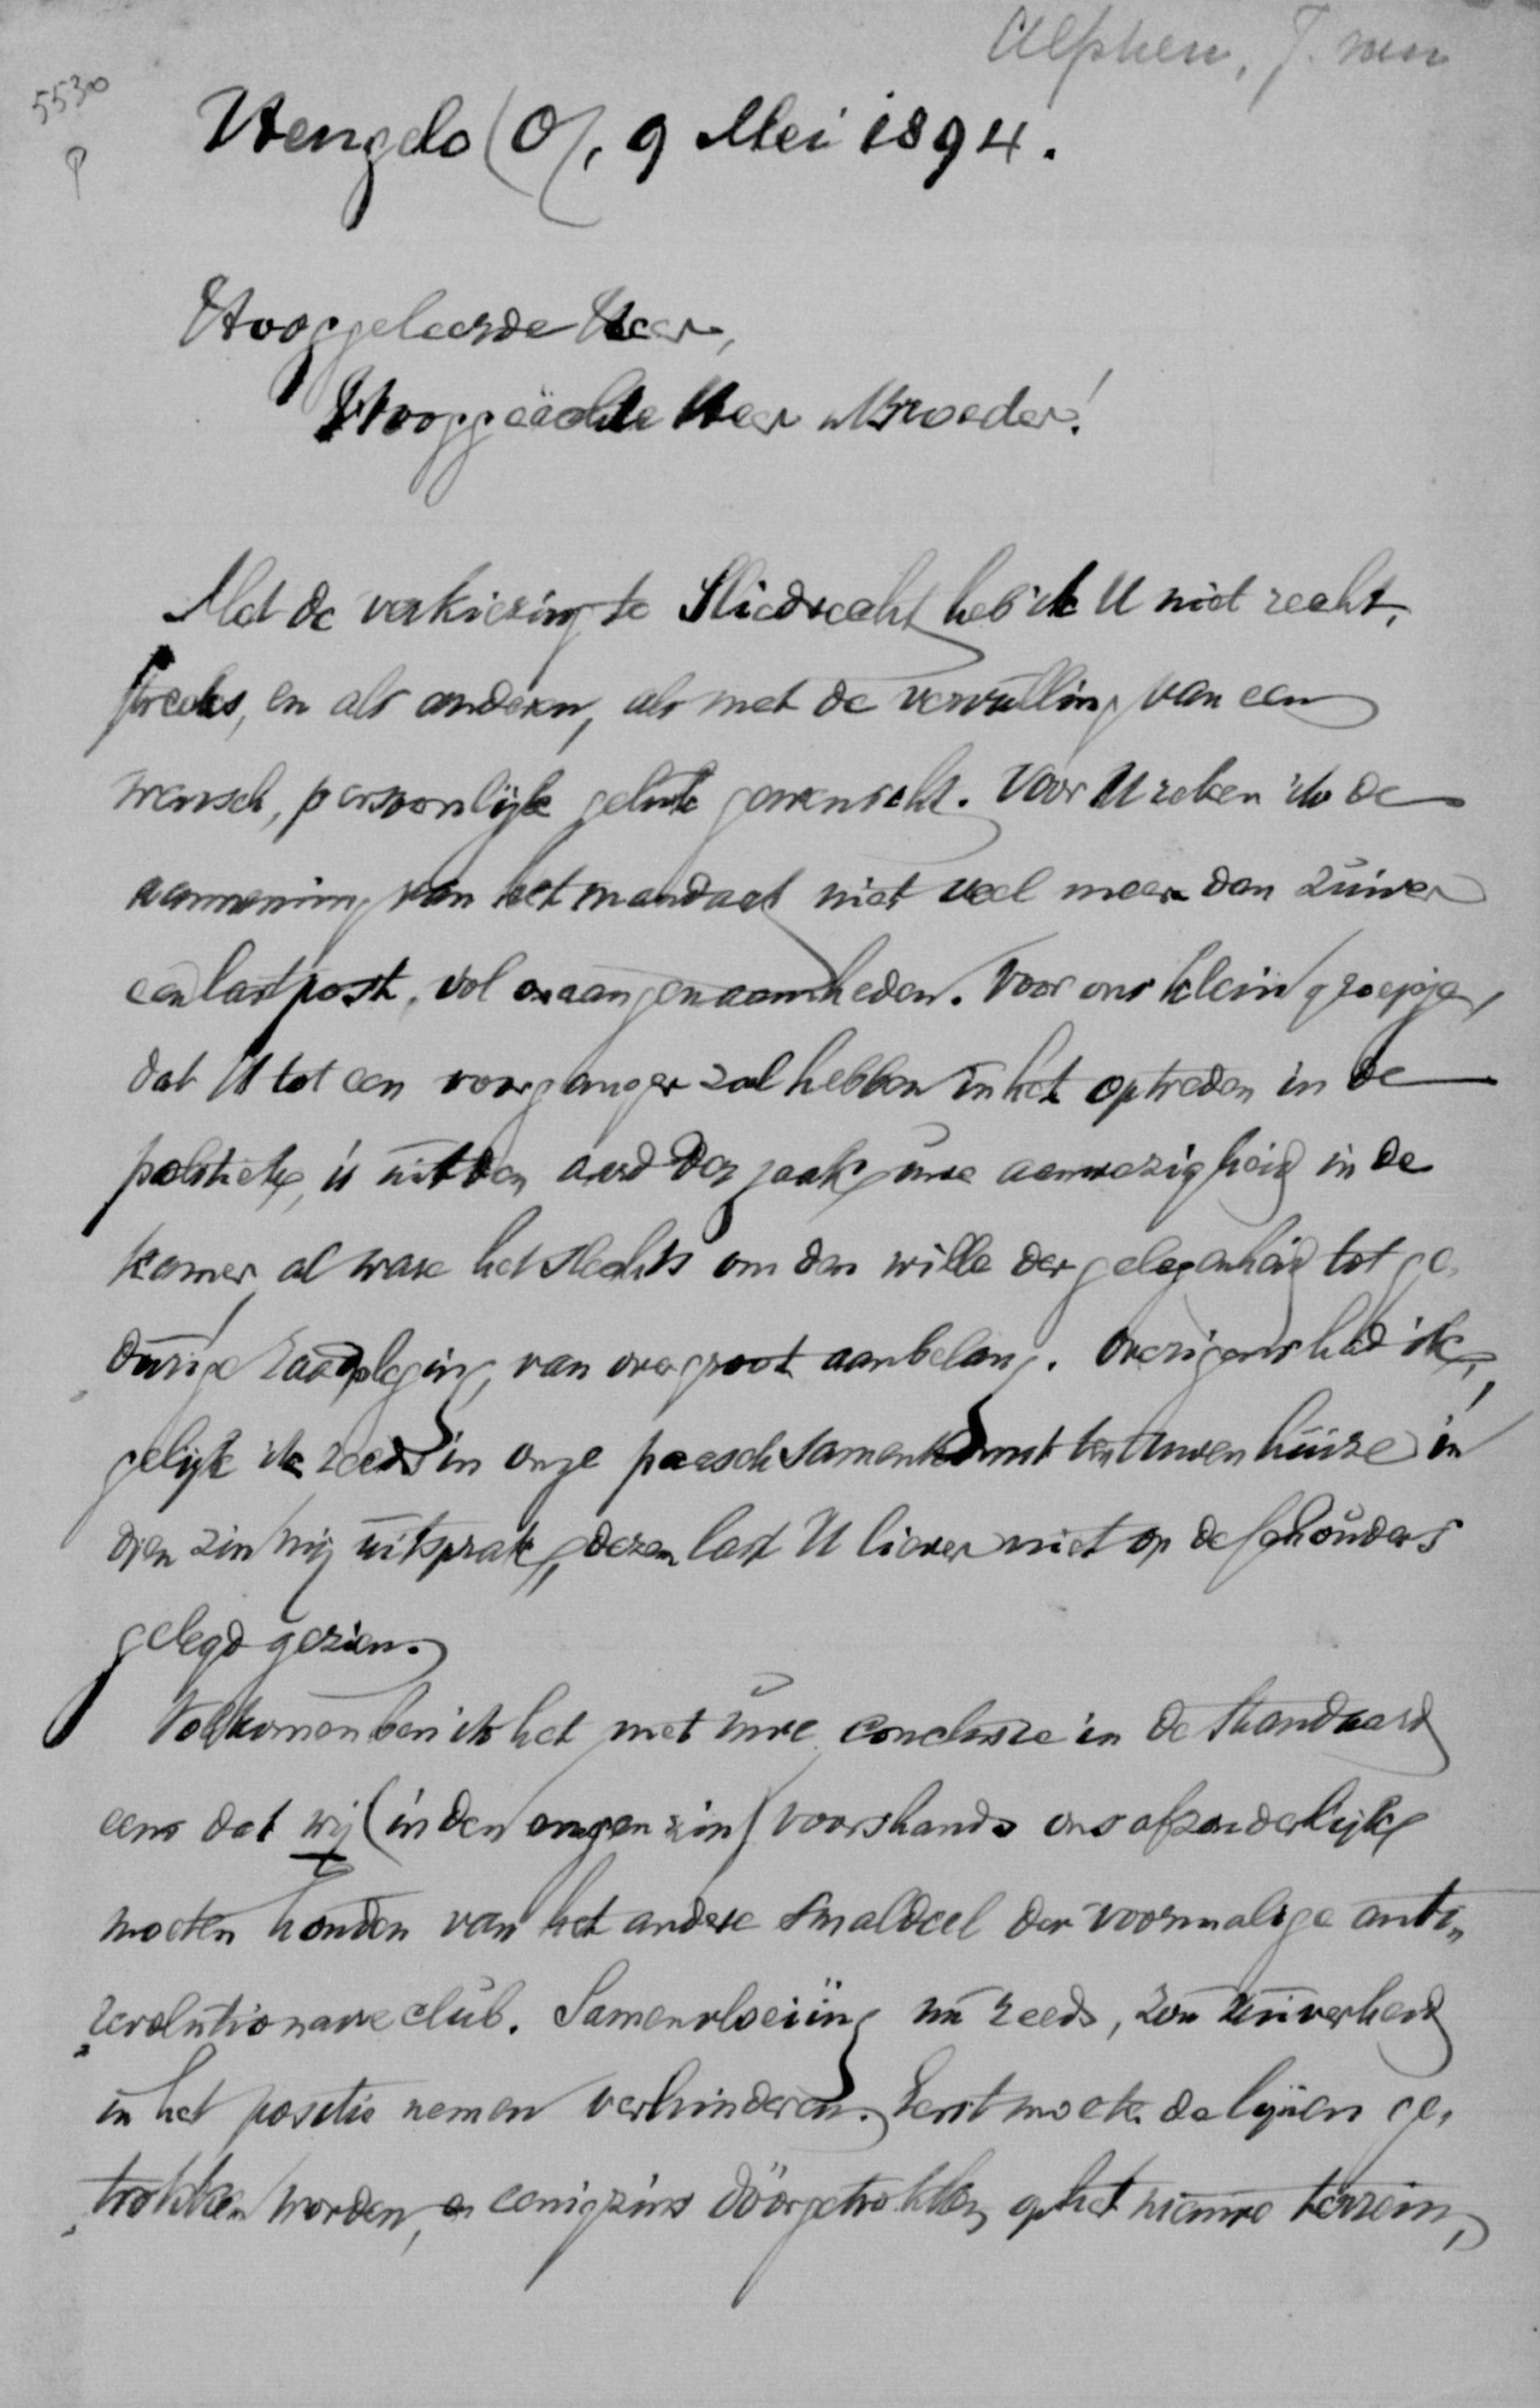 Alphen, J. van
5530
P
Hengelo (O), 9 Mei 1894.
Hooggeleerde Heer,
Hooggeächte Heer en Broeder!
Met de verkiezing te Sliedrecht heb ik U niet recht,
streeks, en als anderen, als met de vervulling van een
wensch, persoonlijk geluk gewenscht. Voor U reken ik de
aanneming van het mandaat niet veel meer dan zuiver
een lastpost, vol onaangenaamheden. Voor ons klein groepje,
dat U tot een voorganger zal hebben in het optreden in de
politiek, is uit den aard der zaak uwe aanwezigheid in de
kamer, al ware het slechts om den wille der gelegenheid tot ge,
durige raadpleging, van overgroot aanbelang. Overigens had ik,
gelijk ik reeds in onze paasch samenkomst ten Uwen huize in
dien zin mij uitsprak, dezen last U liever niet op de schouders
gelegd gezien.
Volkomen ben ik het met uwe conclusie in de Standaard
eens dat wij (in den engen zin) voorshands ons afzonderlijk
moeten houden van het andere smaldeel der voormalige anti„
„revolutionaire club. Samenvloeiing nu reeds, zou zuiverheid
in het positie nemen verhinderen. Eerst moeten de lijnen ge,
„trokken worden, en eenigzins dóórgetrokken op het nieuwe terrein,